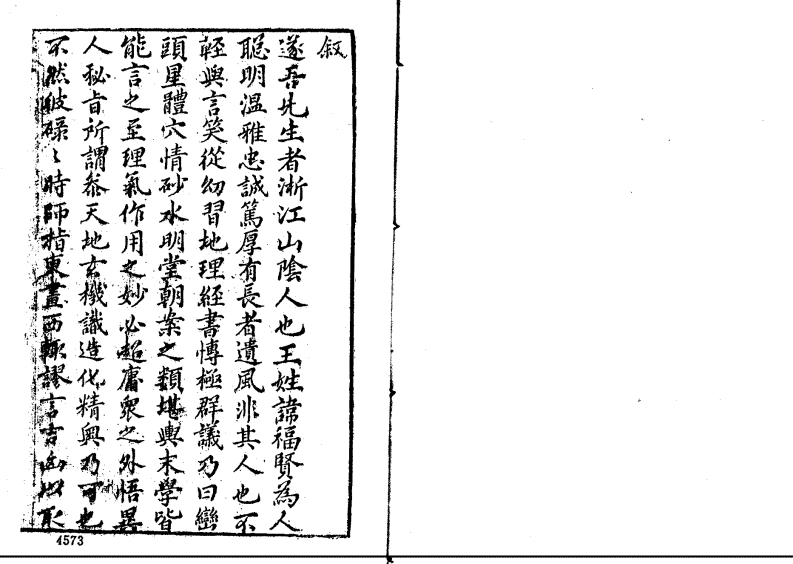 叙
遂吾先生者浙江山陰人也王姓諱福賢為人
聡明溫雅忠誠篤厚有長者遺風非其人也不
輕與言笑從幼習地理経書愽極群議乃曰巒
頭星體穴情砂水明堂朝案之類堪輿末學皆
能言之至理氣作用之妙必超庸衆之外悟異
人秘旨所謂叅天地玄機識造化精奥乃可也
不然彼碌〻時師指東畫西輙謬言吉凶以取
4573